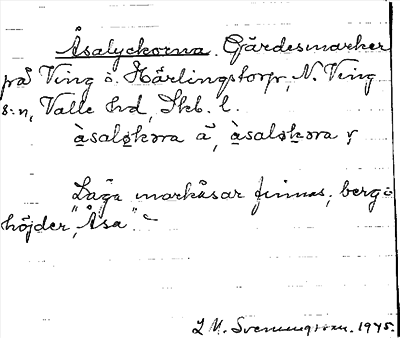 Åsalyckorna. Gärdesmarker
på Ving o. Härlingstorp, N. Ving
s:n, Valle hd, Skb. l.
àsaløkɔra å, àsaløkɔra γ
Låga markåsar finnas, berg o
höjder, "Åsa".
L M. Svenungsson. 1945.